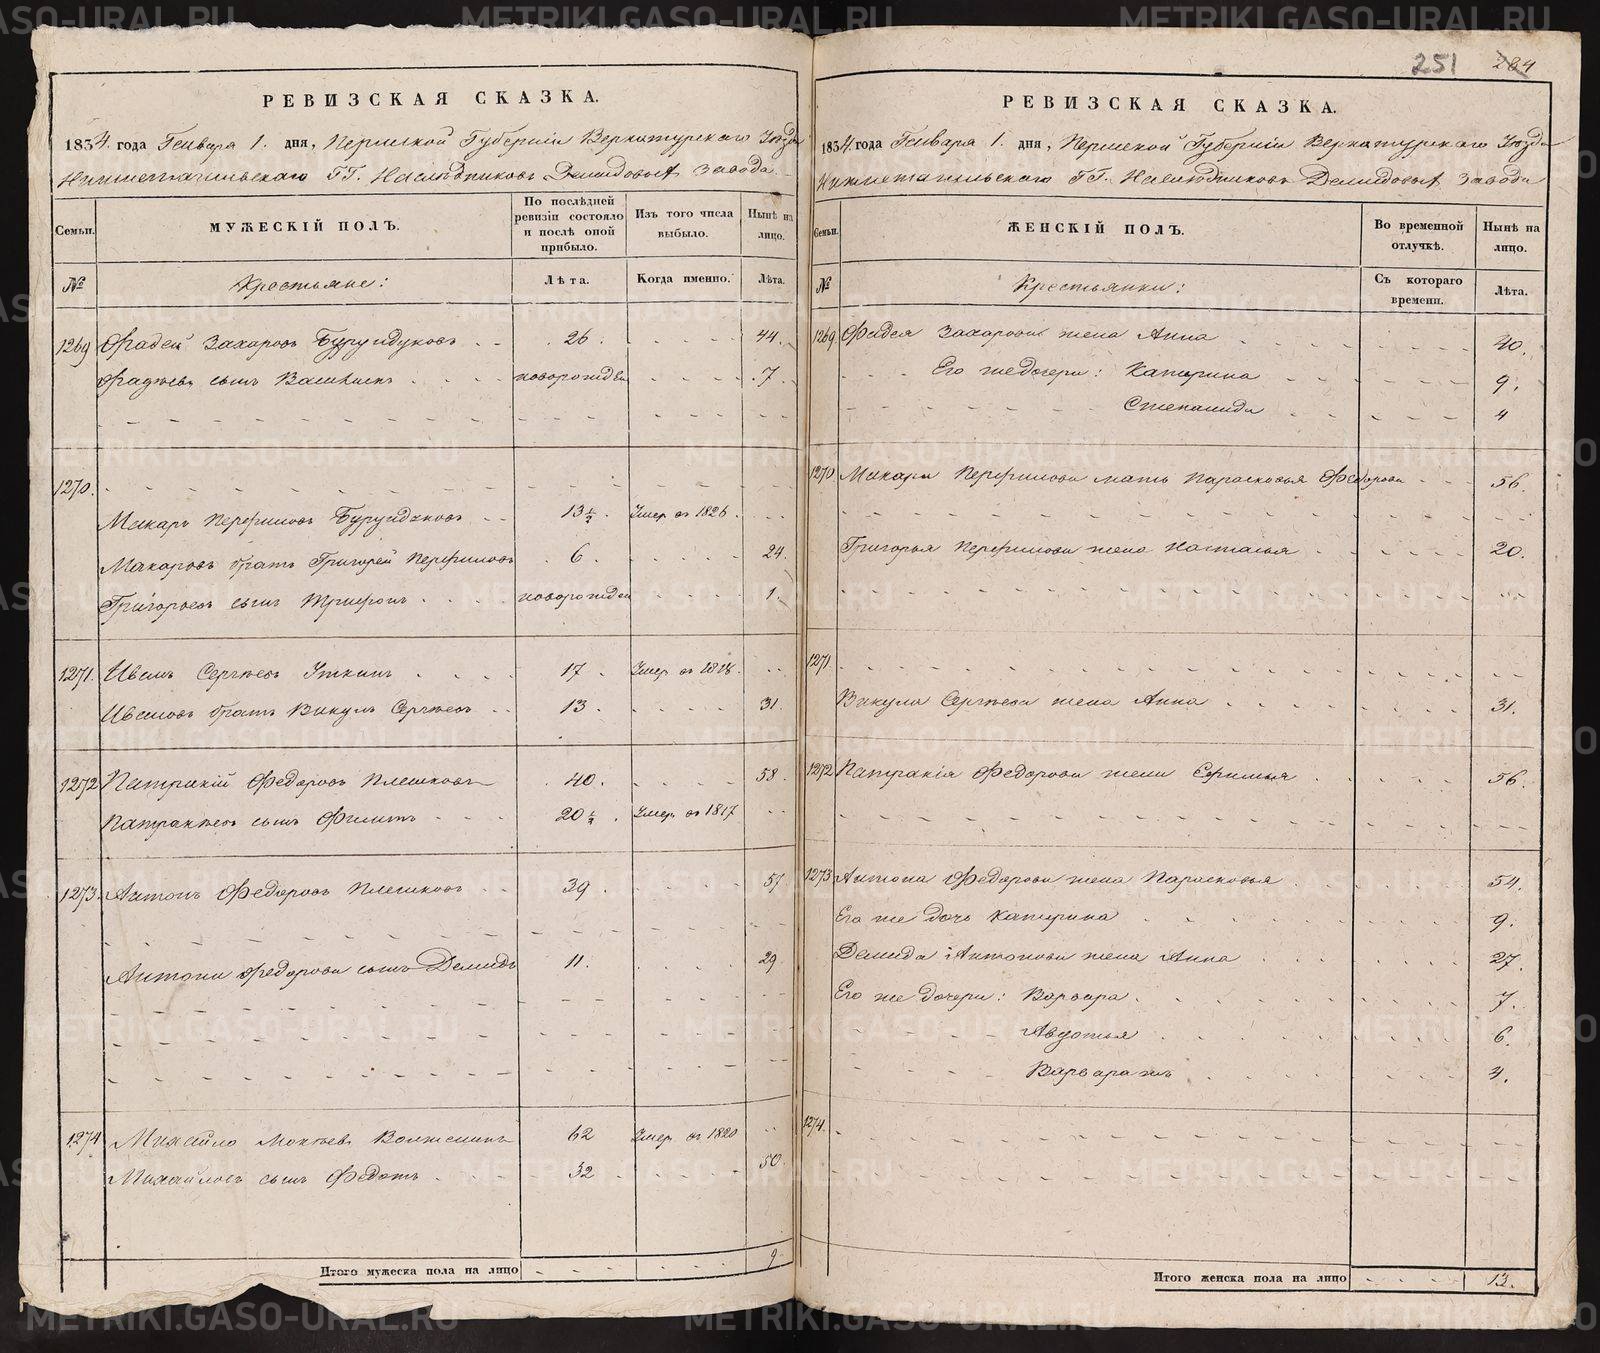 251 264
РЕВИЗСКАЯ СКАЗКА.
1834. года Генваря 1. дня, Пермской Губерніи Верхотурскаго Уѣзда
Нижнетагильскаго ГГ. Наслѣдниковъ Демидовыхъ завода
Семьи.
МУЖЕСКІЙ ПОЛЪ.
По послѣдней ревизіи состояло и послѣ оной прибыло.
Изъ того числа выбыло.
Нынѣ на лицо.
№ Крестьяне: Лѣта. Когда именно. Лѣта.
1269 Фадей Захаровъ Бурундуковъ 26. 44.
Фадѣевъ сынъ Василій новорожден 7
1270.
Макаръ Перфиловъ Бурундуковъ 13½. Умер. въ 1826.
Макаровъ братъ Григорей Перфиловъ 6. 24.
Григорьевъ сынъ Трифонъ новорожден 1.
1271. Иванъ Сергѣевъ Уткинъ 17. Умер. въ 1818.
Ивановъ братъ Викулъ Сергѣевъ 13. 31.
1272 Патракій Федоровъ Плешковъ 40. 58.
Патракѣевъ сынъ Филипъ 20½. Умер. въ 1817
1273. Антонъ Федоровъ Плешковъ 39. 57
Антона Федорова сынъ Демидъ 11. 29
1274 Михайло Мокѣевъ 62 Умер. въ 1820
Михайловъ сынъ Федотъ 32 50
Итого мужеска пола на лицо 9
РЕВИЗСКАЯ СКАЗКА.
1834. года Генваря 1. дня, Пермской Губерніи Верхотурскаго Уѣзда
Нижнетагильскаго ГГ. Наслѣдниковъ Демидовыхъ завода
Семьи.
ЖЕНСКІЙ ПОЛЪ.
Во временной отлучкѣ.
Нынѣ на лицо.
№ Крестьянки: Съ котораго времени. Лѣта.
1269 Фадея Захарова жена Анна 40.
Его же дочери: Катерина 9.
Степанида 4
1270 Макара Перфилова мать Парасковья Федорова 56.
Григорья Перфилова жена Наталья 20.
1271.
Викула Сергѣева жена Анна 31.
1272 Патракія Федорова жена Ефимья 56.
1273 Антона Федорова жена Парасковья 54.
Его же дочь Катерина 9.
Демида Антонова жена Анна 27.
Его же дочери: Варвара 7.
Авдотья 6.
Варвара ж
1274.
Итого женска пола на лицо 13.
METRIKI.GASO-URAL.RU